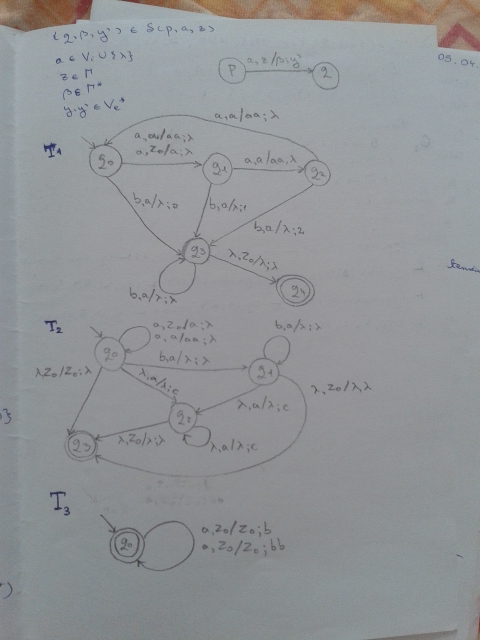 (q, β, y') ∈ δ(p, a, z)
a ∈ Vi ∪ {λ}
z ∈ Γ
β ∈ Γ*
y, y' ∈ Ve*
p a, z/β; y' q
09.04.
T1
a, a/aa; λ
a, a/aa; λ
a, Z0/a; λ
q0 q1 a, a/aa; λ q2
b, a/λ; 0
b, a/λ; 1
b, a/λ; 2
q3 λ, Z0/λ; λ q4
b, a/λ; λ
T2
a, Z0/a; λ
a, a/aa; λ
b, a/λ; λ
q0 b, a/λ; λ q1
λ, Z0/Z0; λ
λ, a/λ; c
λ, a/λ; c
λ, Z0/λ, λ
q2
q3 λ, Z0/λ; λ
λ, a/λ; c
T3
q0
a, Z0/Z0; b
a, Z0/Z0; bb